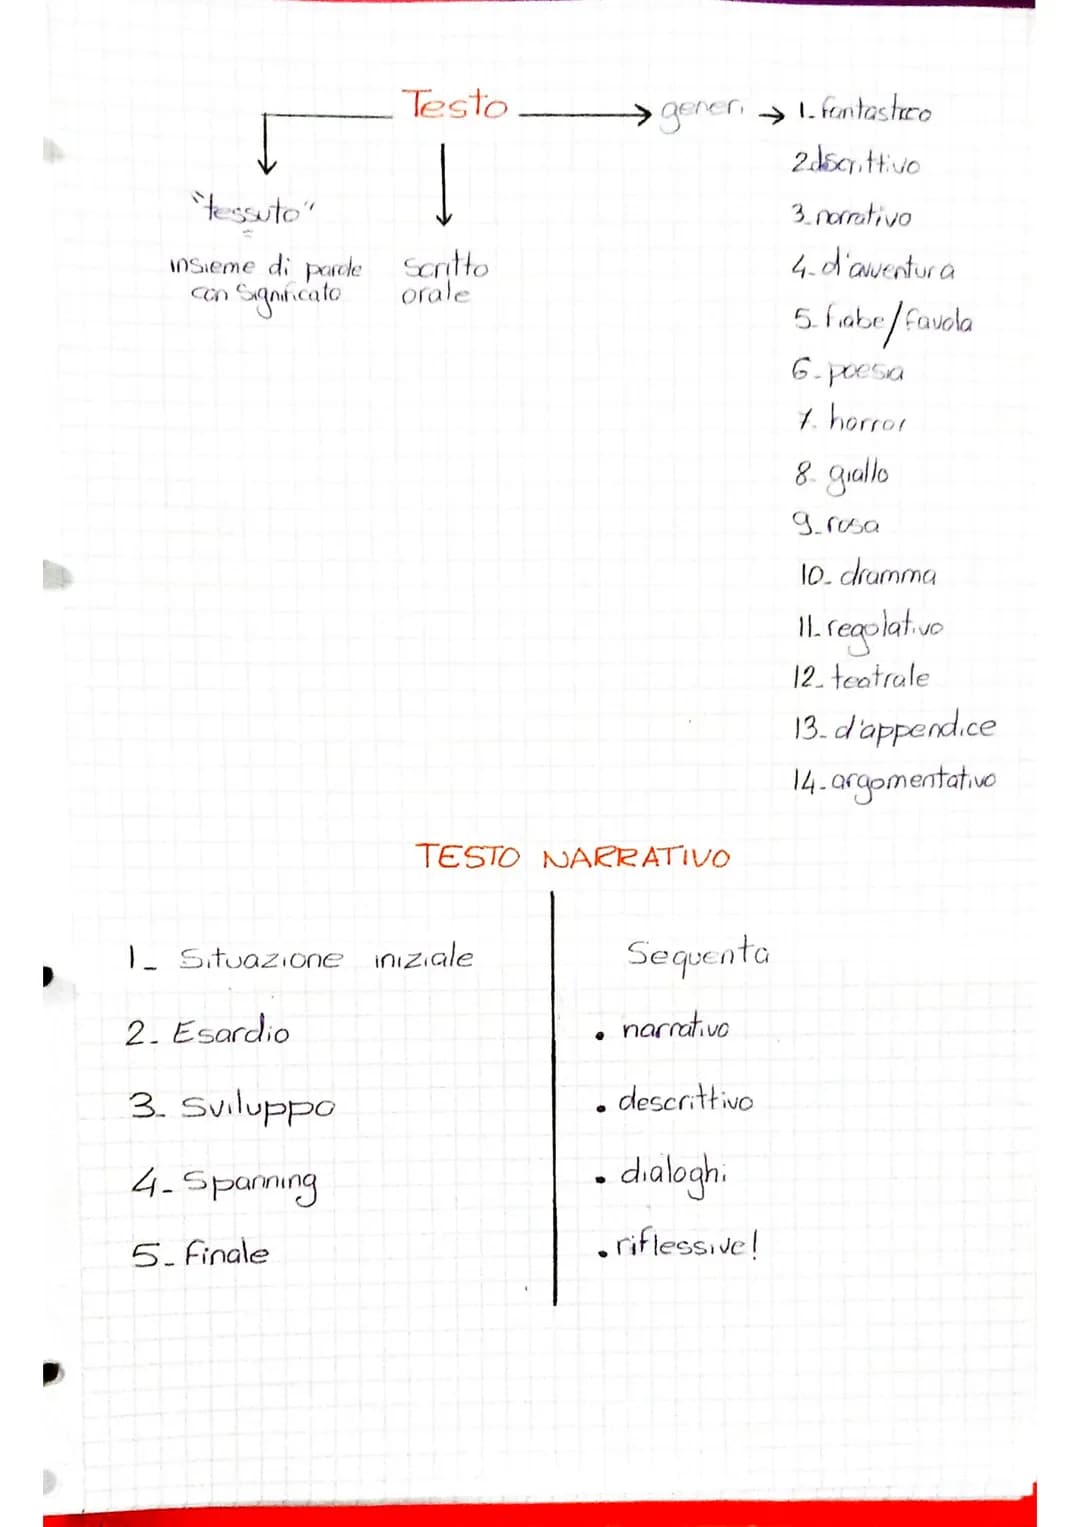 Testo
generi
1. fantastico
2. dscrittivo
3. narrativo
4. d'avventura
5. fiabe/favola
6. poesia
7. horror
8. giallo
9. rosa
10. dramma
11. regolativo
12. teatrale
13. d'appendice
14. argomentativo
"tessuto"
insieme di parole
con significato
scritto
orale
TESTO NARRATIVO
1_ Situazione iniziale
2. Esardio
3. Sviluppo
4_ Spanning
5_ finale
Sequenta
• narrativo
• descrittivo
• dialoghi
• riflessive!